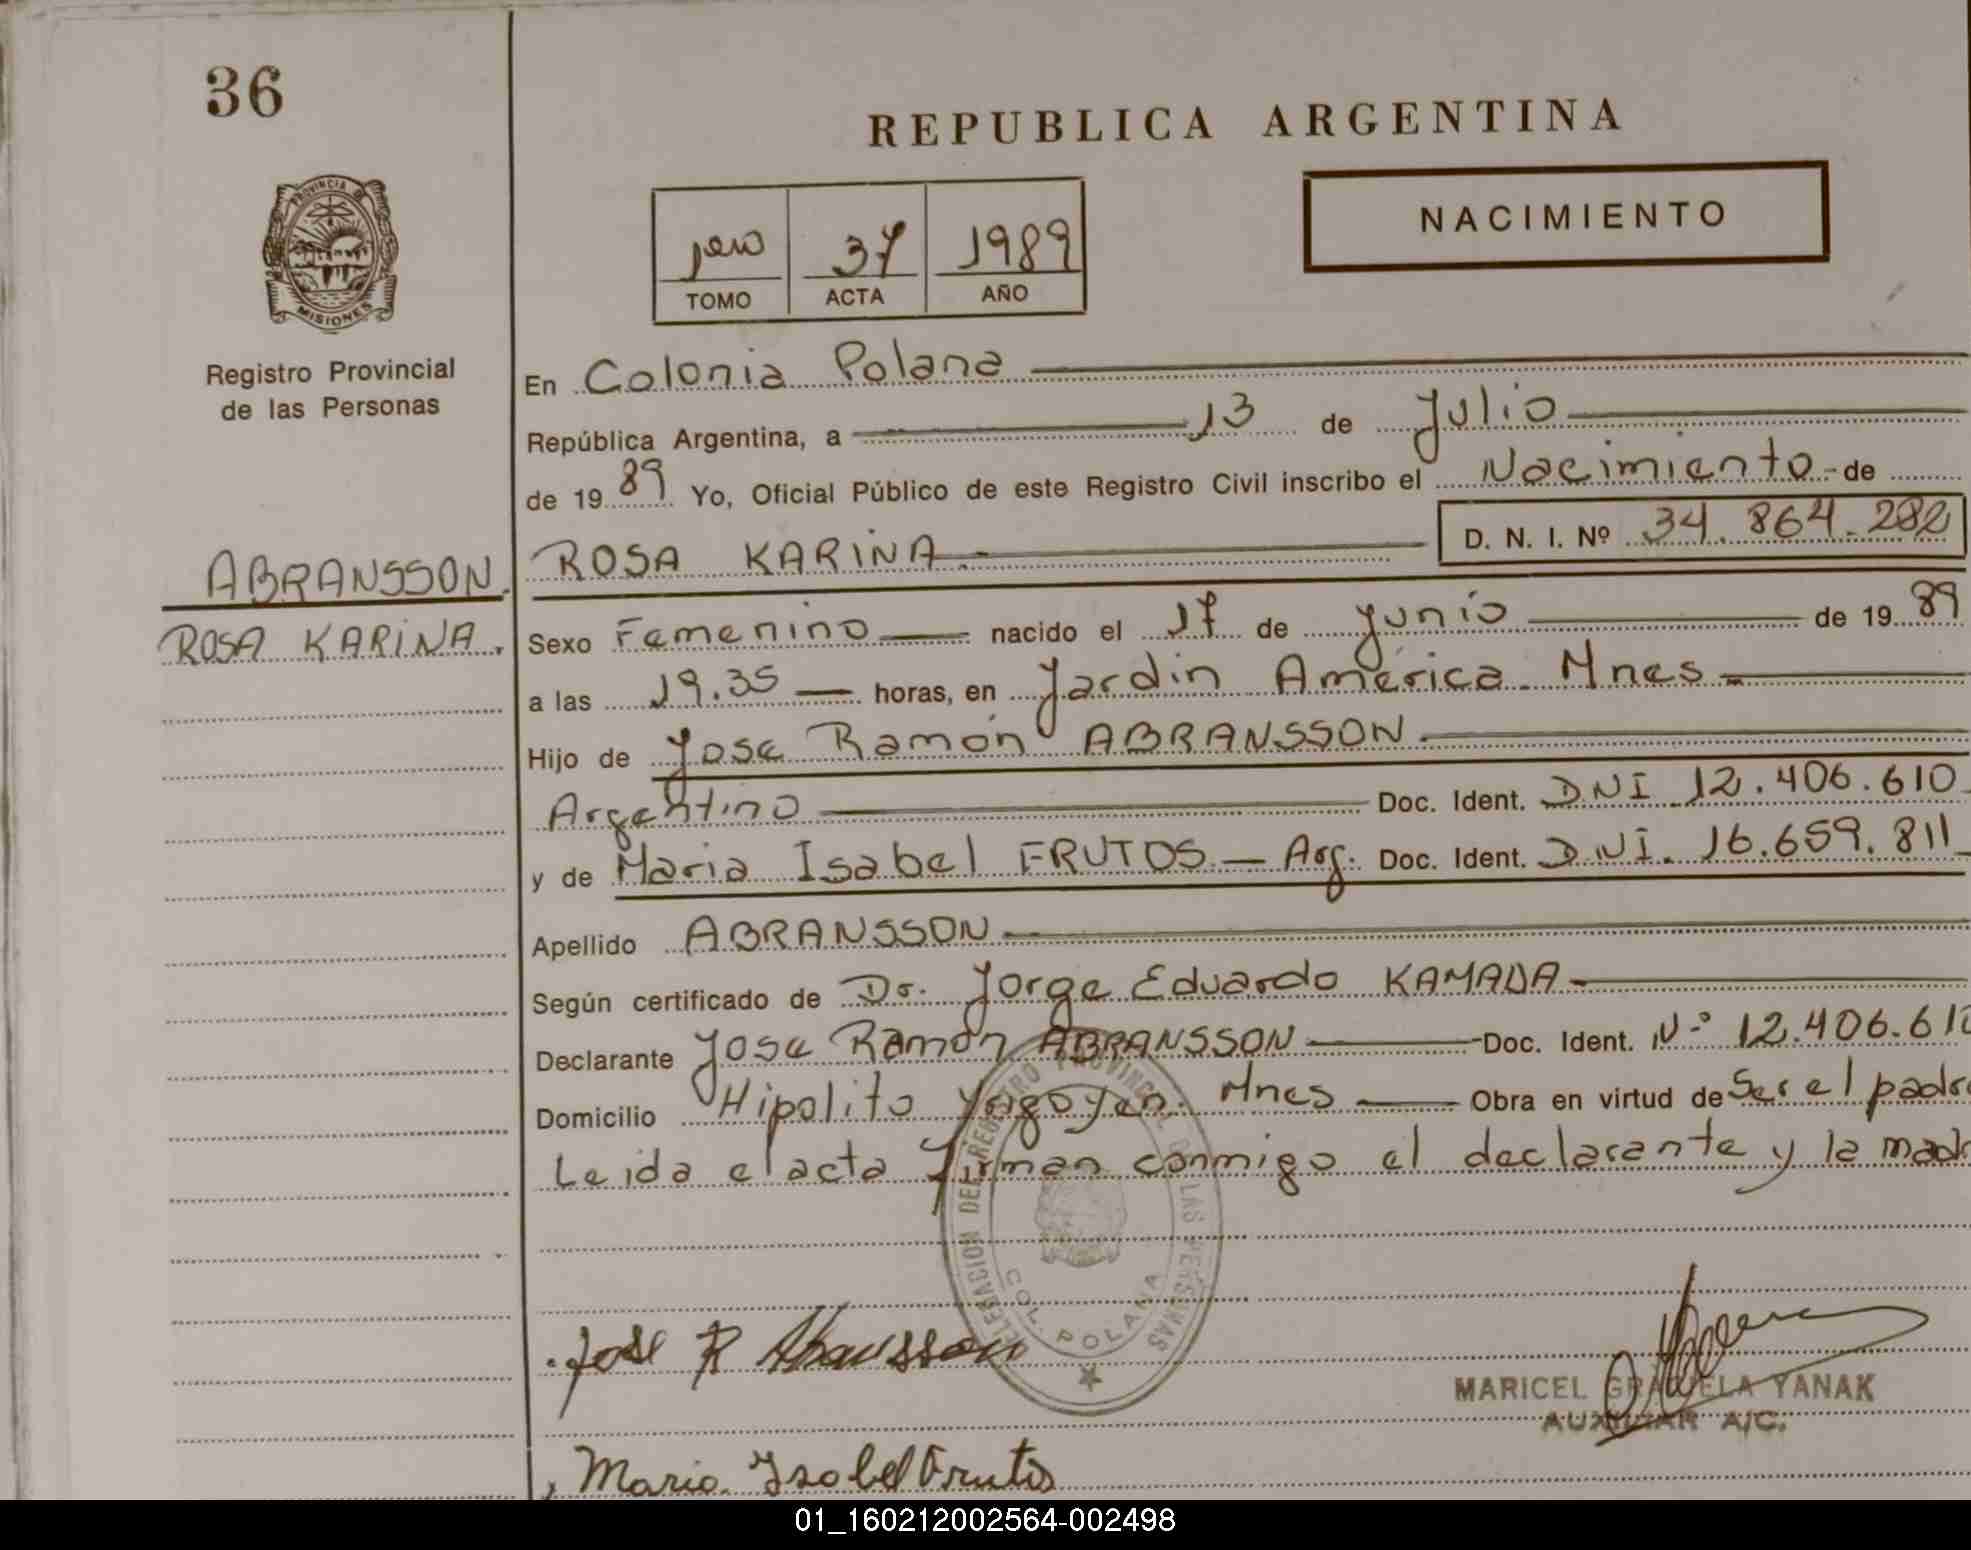 36
REPUBLICA ARGENTINA
PROVINCIA DE
MISIONES
NACIMIENTO
37 1989
TOMO ACTA AÑO
Registro Provincial
de las Personas
En Colonia Polana
República Argentina, a 13 de Julio
de 1989 Yo, Oficial Público de este Registro Civil inscribo el Nacimiento - de
ABRANSSON.
ROSA KARINA.
ROSA KARINA.- D. N. I. Nº 34.864.282
Sexo Femenino nacido el 17 de Junio de 1989
a las 19.35 horas, en Jardin América. Mnes -
Hijo de Jose Ramón ABRANSSON.
Argentino Doc. Ident. DNI 12.406.610
y de Maria Isabel FRUTOS - Arg. Doc. Ident. DNI. 16.659.811
Apellido ABRANSSON
Según certificado de Dr. Jorge Eduardo KAMADA
Declarante Jose Ramón ABRANSSON Doc. Ident. Nº 12.406.610
Domicilio Hipolito Yrigoyen. Mnes Obra en virtud de Ser el padre
Leida el acta firman conmigo el declarante y la madre
DELEGACION DEL REGISTRO PROVINCIAL DE LAS PERSONAS
COL. POLANA
Jose R Abransson
MARICEL GRACIELA YANAK
AUXILIAR A/C.
Maria Isabel Frutos
01_160212002564-002498